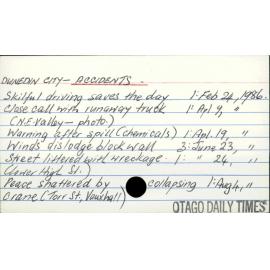 DUNEDIN CITY - ACCIDENTS.
Skilful driving saves the day 1: Feb 24, 1986.
Close call with runaway truck 1: Apl 9, "
(N.E. Valley - photo.)
Warning after spill (chemicals) 1: Apl. 19, "
Winds dislodge block wall 3: June 23, "
Street littered with wreckage 1: " 24, "
(Lower High St.)
Peace shattered by collapsing 1: Aug 4, "
crane (Torr St, Vauxhall)
OTAGO DAILY TIMES